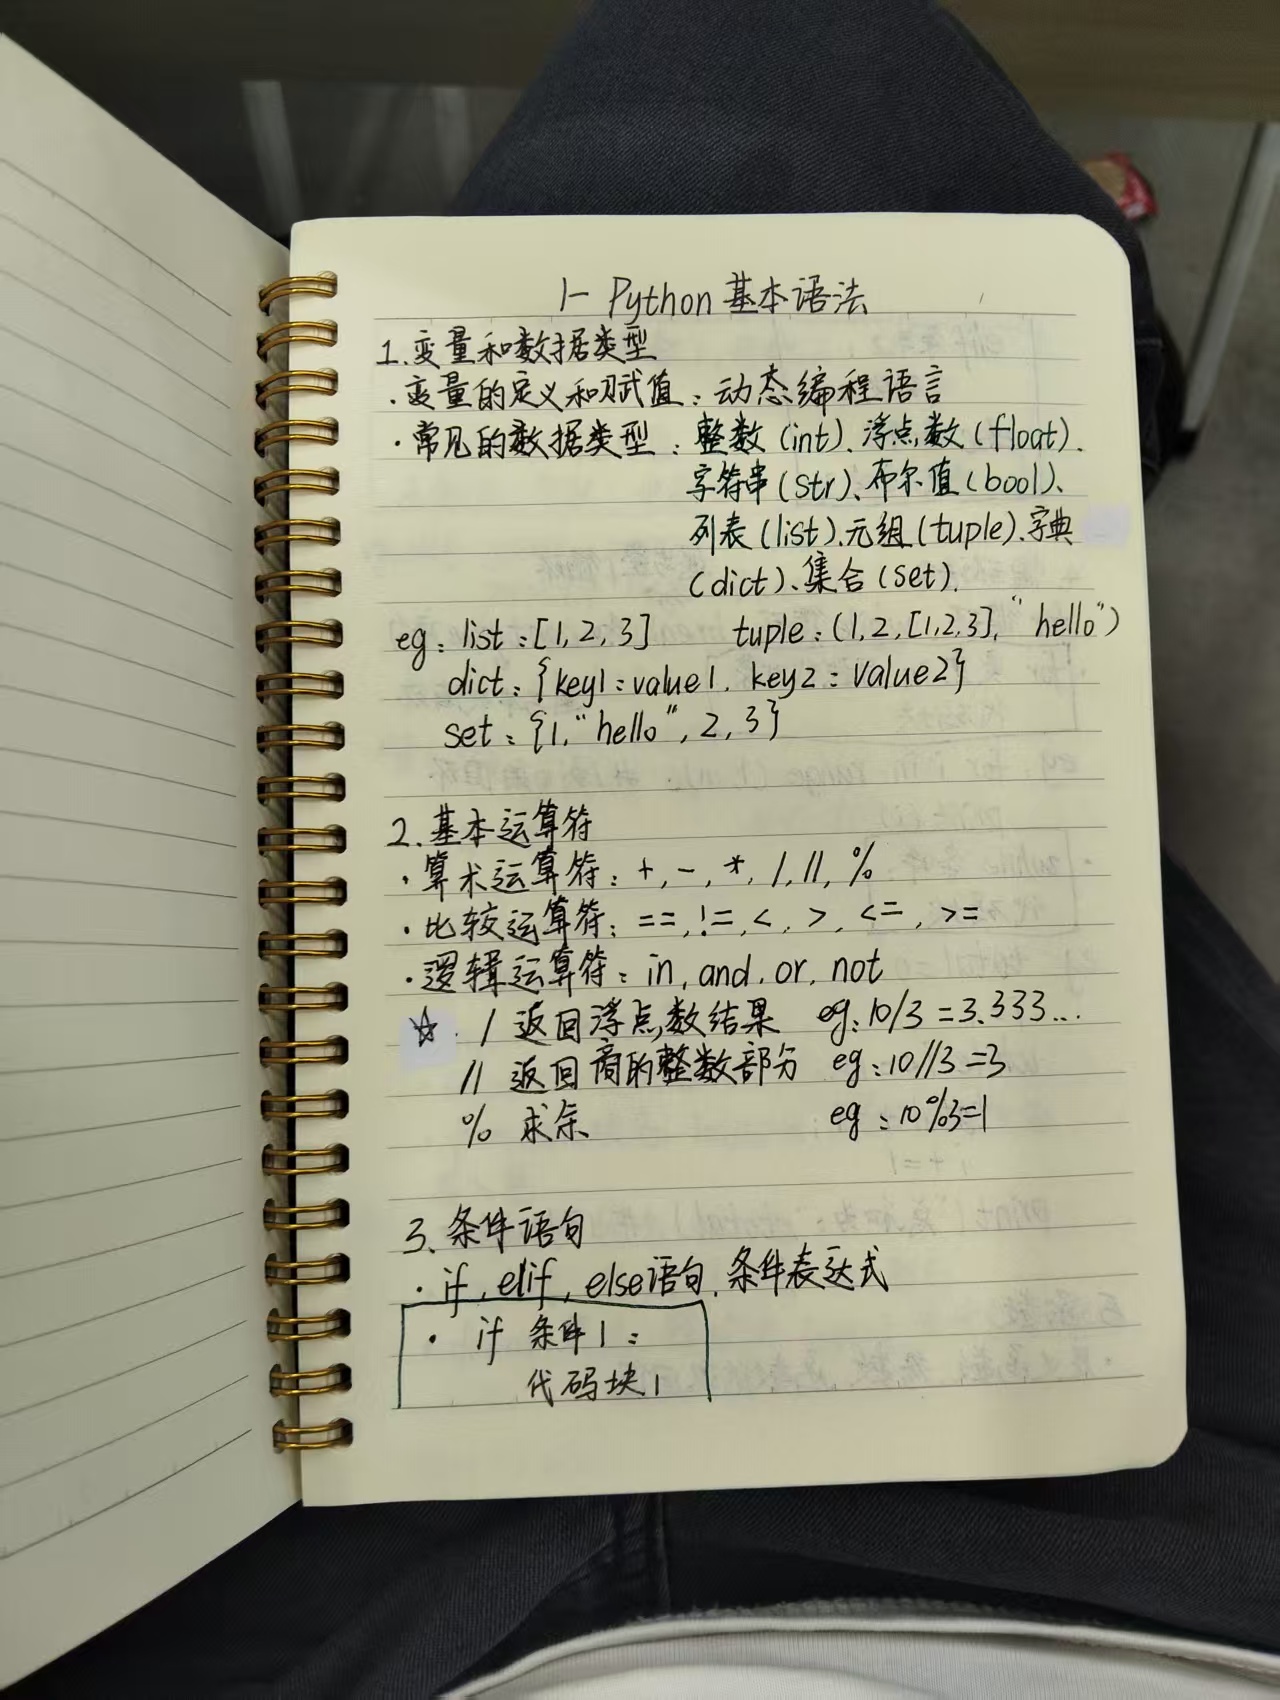 1- Python基本语法
1.变量和数据类型
·变量的定义和赋值：动态编程语言
·常见的数据类型：整数(int)、浮点数(float)、
字符串(str)、布尔值(bool)、
列表(list)、元组(tuple)、字典
(dict)、集合(set).
eg: list:[1,2,3] tuple:(1,2,[1,2,3],"hello")
dict:{key1:value1, key2:value2}
set:{1,"hello",2,3}
2.基本运算符
·算术运算符：+,-,*,/,//,%
·比较运算符：==,!=,<,>,<=,>=
·逻辑运算符：in,and,or,not
☆ / 返回浮点数结果 eg:10/3=3.333...
// 返回商的整数部分 eg:10//3=3
% 求余 eg:10%3=1
3、条件语句
·if, elif, else语句、条件表达式
· if 条件1:
代码块1